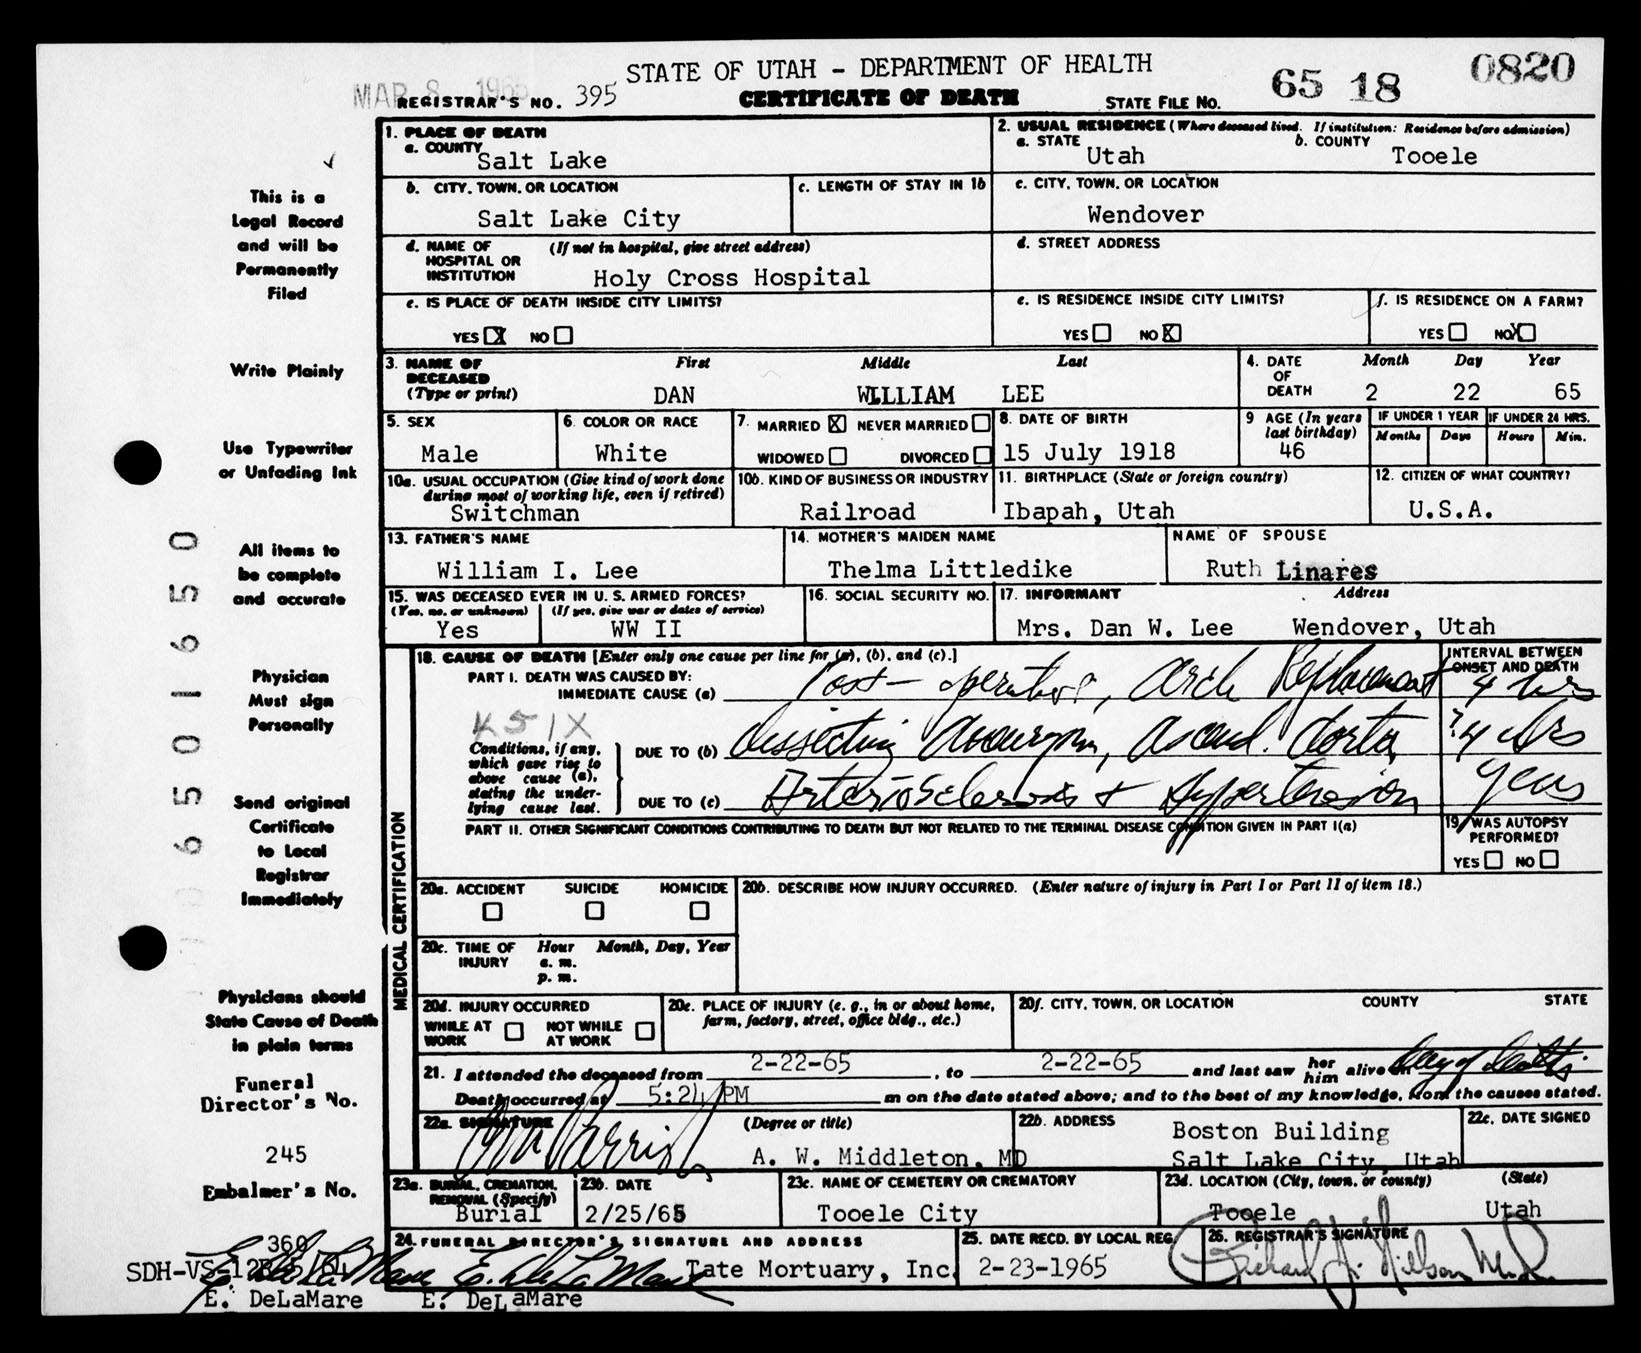 STATE OF UTAH - DEPARTMENT OF HEALTH
MAR 8 1965 REGISTRAR'S NO. 395 CERTIFICATE OF DEATH STATE FILE NO. 65 18 0820
This is a
Legal Record
and will be
Permanently
Filed
Write Plainly
Use Typewriter
or Unfading Ink
All items to
be complete
and accurate
Physician
Must sign
Personally
Send original
Certificate
to Local
Registrar
Immediately
Physicians should
State Cause of Death
in plain terms
Funeral
Director's No.
245
Embalmer's No.
360
SDH-VS-
E. DeLaMare
0 6 5 0 1 6 5 0
1. PLACE OF DEATH
a. COUNTY Salt Lake
2. USUAL RESIDENCE (Where deceased lived. If institution: Residence before admission)
a. STATE Utah b. COUNTY Tooele
b. CITY, TOWN, OR LOCATION
Salt Lake City
c. LENGTH OF STAY IN 1b
c. CITY, TOWN, OR LOCATION
Wendover
d. NAME OF HOSPITAL OR INSTITUTION (If not in hospital, give street address)
Holy Cross Hospital
d. STREET ADDRESS
e. IS PLACE OF DEATH INSIDE CITY LIMITS?
YES X NO
e. IS RESIDENCE INSIDE CITY LIMITS?
YES NO X
f. IS RESIDENCE ON A FARM?
YES NO X
3. NAME OF DECEASED (Type or print) First Middle Last
DAN WILLIAM LEE
4. DATE OF DEATH Month Day Year
2 22 65
5. SEX
Male
6. COLOR OR RACE
White
7. MARRIED X NEVER MARRIED
WIDOWED DIVORCED
8. DATE OF BIRTH
15 July 1918
9 AGE (In years last birthday)
46
IF UNDER 1 YEAR IF UNDER 24 HRS.
Months Days Hours Min.
10a. USUAL OCCUPATION (Give kind of work done
during most of working life, even if retired)
Switchman
10b. KIND OF BUSINESS OR INDUSTRY
Railroad
11. BIRTHPLACE (State or foreign country)
Ibapah, Utah
12. CITIZEN OF WHAT COUNTRY?
U.S.A.
13. FATHER'S NAME
William I. Lee
14. MOTHER'S MAIDEN NAME
Thelma Littledike
NAME OF SPOUSE
Ruth Linares
15. WAS DECEASED EVER IN U.S. ARMED FORCES?
(Yes, no, or unknown) (If yes, give war or dates of service)
Yes WW II
16. SOCIAL SECURITY NO.
17. INFORMANT Address
Mrs. Dan W. Lee Wendover, Utah
MEDICAL CERTIFICATION
18. CAUSE OF DEATH [Enter only one cause per line for (a), (b), and (c).]
INTERVAL BETWEEN ONSET AND DEATH
PART I. DEATH WAS CAUSED BY:
IMMEDIATE CAUSE (a) Post-operative, Arch Replacement 4 hrs
451X
Conditions, if any,
which gave rise to
above cause (a),
stating the under-
lying cause last.
DUE TO (b) Dissecting Aneurysm, Ascend. Aorta
DUE TO (c) Arteriosclerosis + Hypertension years
PART II. OTHER SIGNIFICANT CONDITIONS CONTRIBUTING TO DEATH BUT NOT RELATED TO THE TERMINAL DISEASE CONDITION GIVEN IN PART I(a)
19. WAS AUTOPSY PERFORMED?
YES NO
20a. ACCIDENT SUICIDE HOMICIDE
20b. DESCRIBE HOW INJURY OCCURRED. (Enter nature of injury in Part I or Part II of item 18.)
20c. TIME OF INJURY Hour Month, Day, Year
a. m.
p. m.
20d. INJURY OCCURRED
WHILE AT WORK NOT WHILE AT WORK
20e. PLACE OF INJURY (e. g., in or about home,
farm, factory, street, office bldg., etc.)
20f. CITY, TOWN, OR LOCATION COUNTY STATE
21. I attended the deceased from 2-22-65, to 2-22-65 and last saw her him alive on Day of death
Death occurred at 5:24 PM m on the date stated above; and to the best of my knowledge, from the causes stated.
22a. SIGNATURE (Degree or title)
A. W. Middleton, MD
22b. ADDRESS
Boston Building
Salt Lake City, Utah
22c. DATE SIGNED
23a. BURIAL, CREMATION, REMOVAL (Specify)
Burial
23b. DATE
2/25/65
23c. NAME OF CEMETERY OR CREMATORY
Tooele City
23d. LOCATION (City, town, or county) (State)
Tooele Utah
24. FUNERAL DIRECTOR'S SIGNATURE AND ADDRESS
E. DeLaMare Tate Mortuary, Inc.
E. DeLaMare
25. DATE RECD. BY LOCAL REG.
2-23-1965
26. REGISTRAR'S SIGNATURE